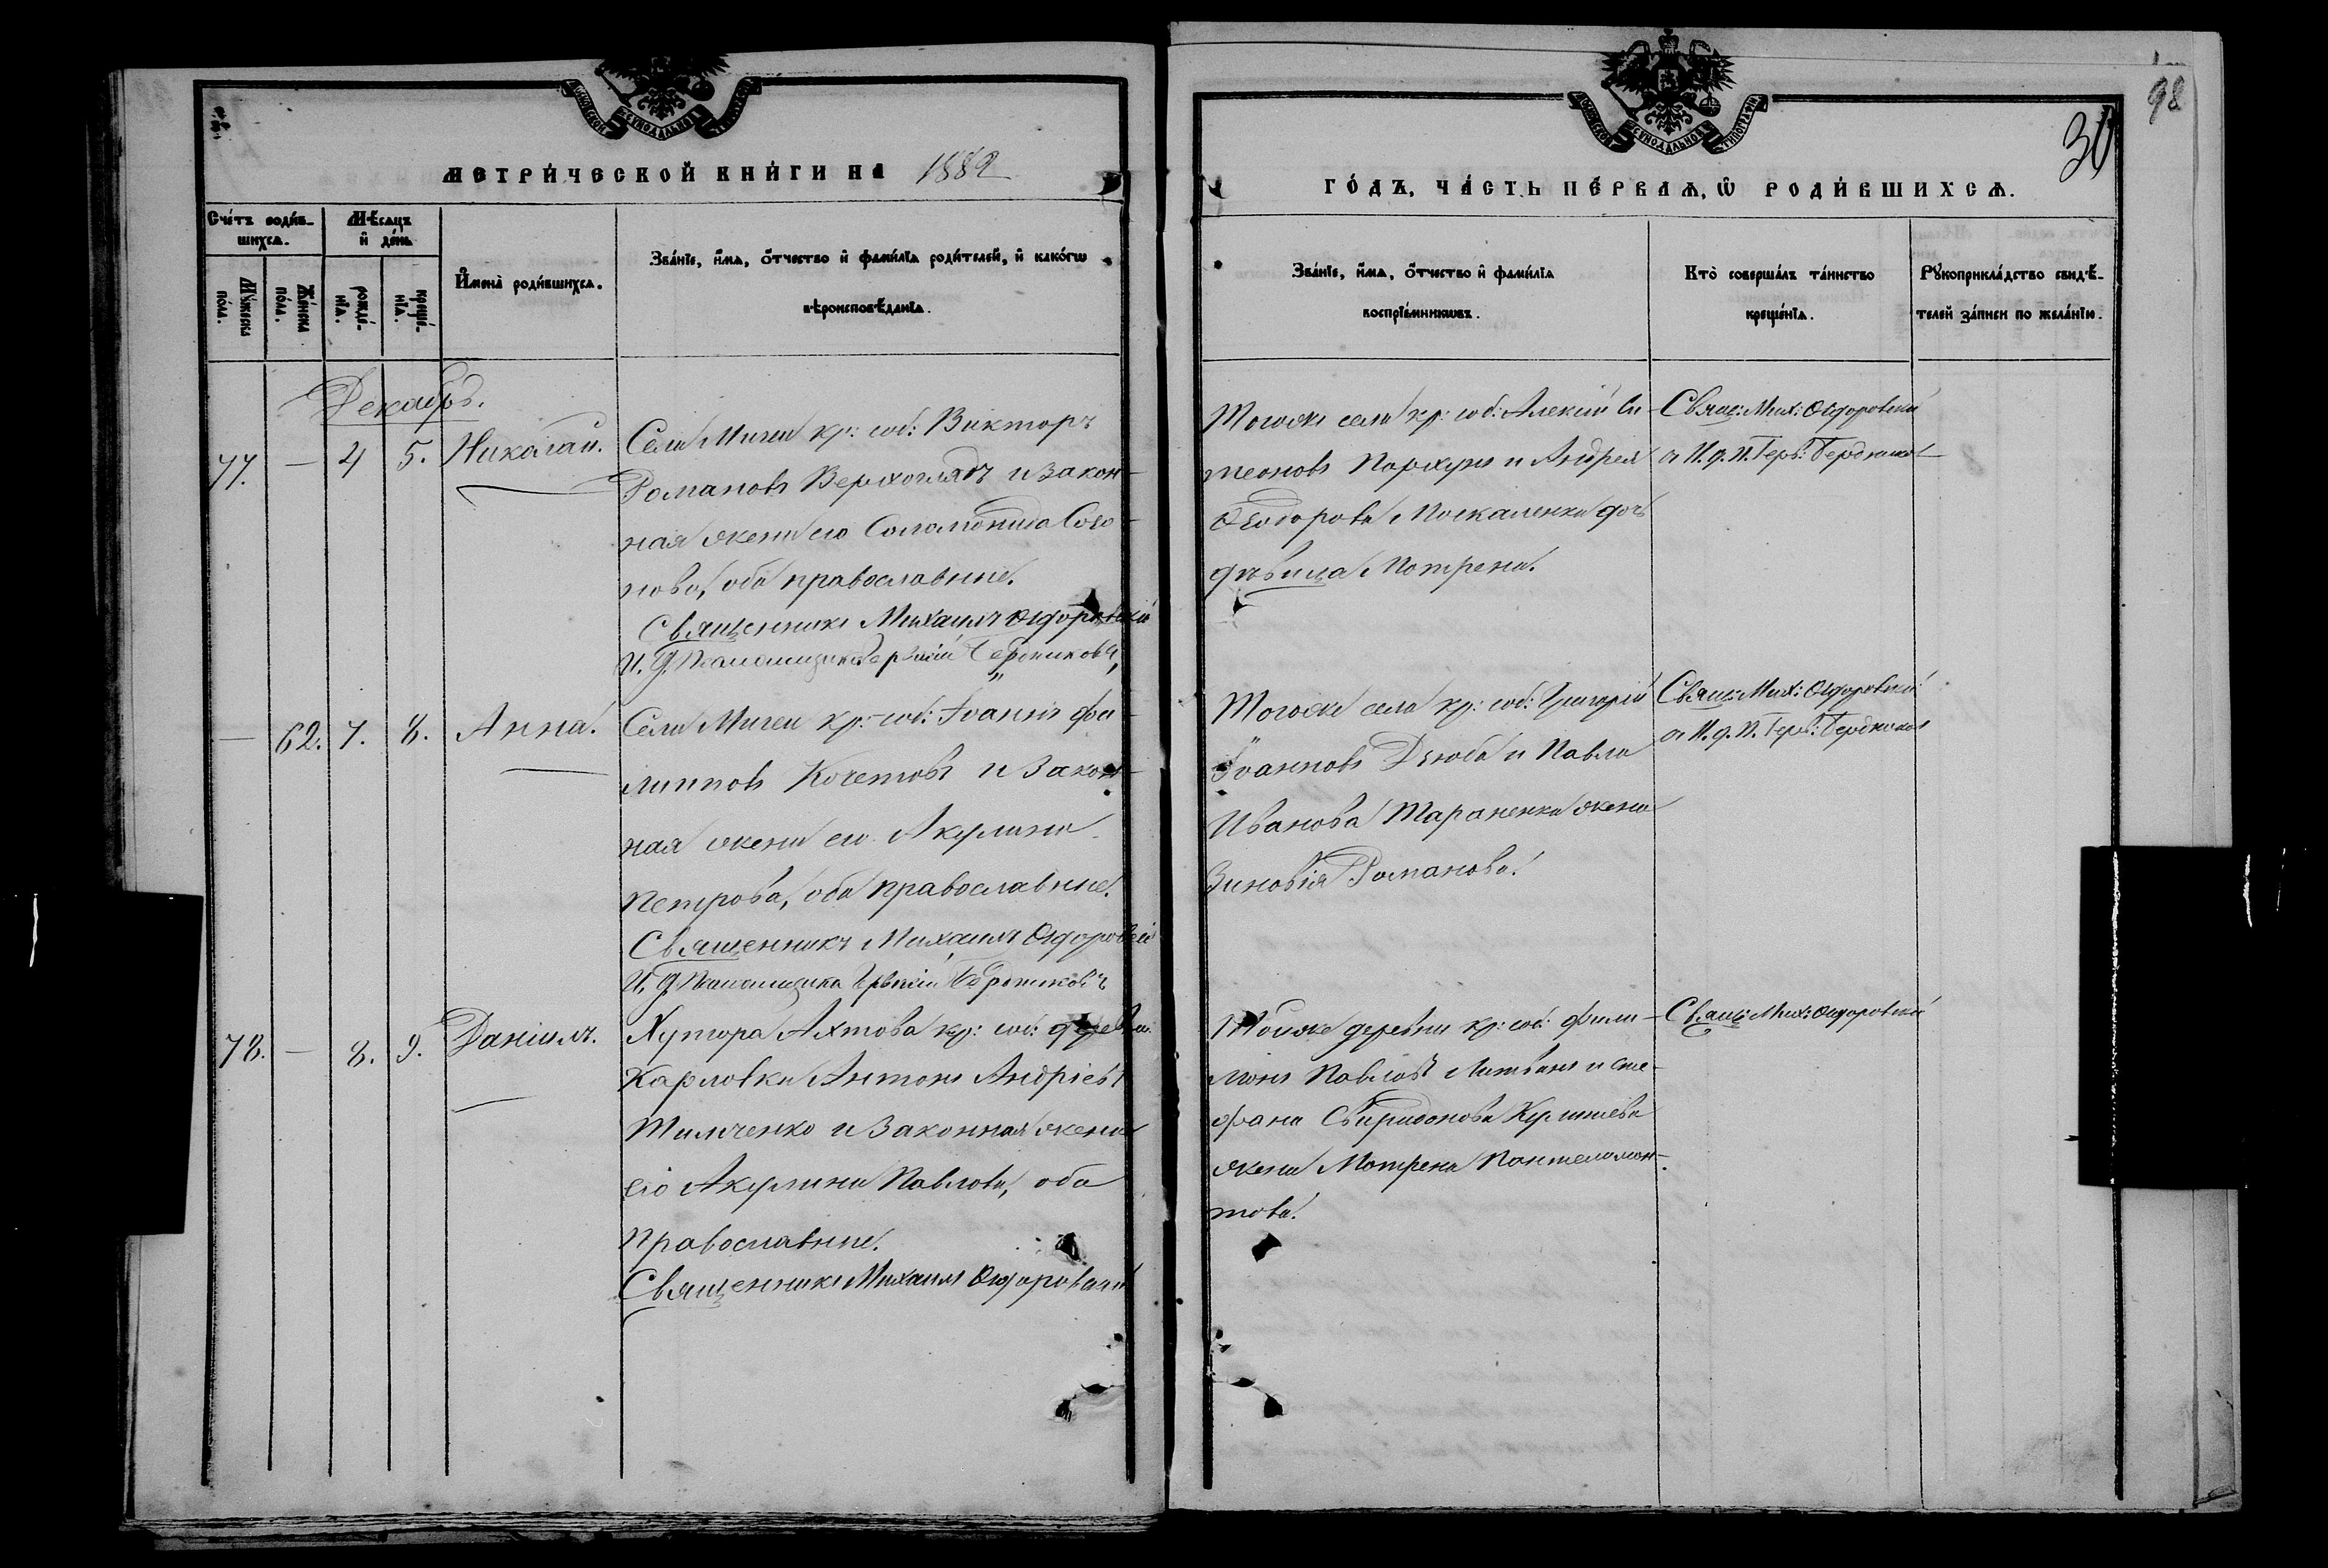 98
30
МОСКОВСКОЙ СѴНОДАЛЬНОЙ ТИПОГРАФІИ
МОСКОВСКОЙ СѴНОДАЛЬНОЙ ТИПОГРАФІИ
МЕТРИ́ЧЕСКОЙ КНИ́ГИ НА 1882
ГО́ДЪ, ЧА́СТЬ ПЕ́РВАѦ, Ѡ҆ РОДИ́ВШИХСѦ.
Сче́тъ роди́в-
шихсѧ.
Мѣ́сѧцъ
и҆ де́нь
Мꙋ́жеска
по́ла.
Же́нска
по́ла.
рожде́-
нїѧ.
креще́-
нїѧ.
И҆мена̀ роди́вшихсѧ.
Зва́нїе, и҆́мѧ, ѻ҆́тчество и҆ фами́лїѧ роди́телей, и҆ како́гѡ
вѣроисповѣ́данїѧ.
Зва́нїе, и҆́мѧ, ѻ҆́тчество и҆ фами́лїѧ
воспрїе́мникѡвъ.
Кто̀ соверша́лъ та́инство
креще́нїѧ.
Рꙋкоприкла́дство свидѣ́-
телей за́писи по жела́нїю.
Декабрь.
77. — 4 5. Николай.
Села Мигеи кр: соб: Викторъ
Романовъ Верхоглядъ и закон-
ная жена его Соломонида Созо-
нова, оба православные.
Священникъ Михаилъ Ѳедоровскій
И. д. Псаломщика Бердниковъ
Тогоже села кр: соб: Алексій Си-
меоновъ Пархунъ и Андрея
Ѳеодорова Москаленка дочь
дѣвица Мотрена.
Свящ: Мих: Ѳедоровскій
а И. д. П. Герв: Бердниковъ
— 62. 7. 8. Анна.
Села Мигеи кр: соб: Іоаннъ Фи-
липповъ Кочетовъ и закон-
ная жена его Акулина
Петрова, оба православные.
Священникъ Михаилъ Ѳедоровскій
И. д. Псаломщика Бердниковъ
Тогоже села кр: соб: Григорій
Іоанновъ Дзюба и Павла
Иванова Тараненка жена
Зиновія Романова.
Свящ: Мих: Ѳедоровскій
а И. д. П. Герв: Бердниковъ
78. — 8. 9. Даніилъ.
Хутора Ахтова кр: соб: деревни
Карловки Антонъ Андріевъ
Тимченко и законная жена
его Акулина Павлова, оба
православные.
Священникъ Михаилъ Ѳедоровскій
Тойже деревни кр: соб: Фили-
монъ Павловъ Литвинъ и Сте-
фана Свиридонова
жена Мотрена Пантелимон-
това.
Свящ: Мих: Ѳедоровскій